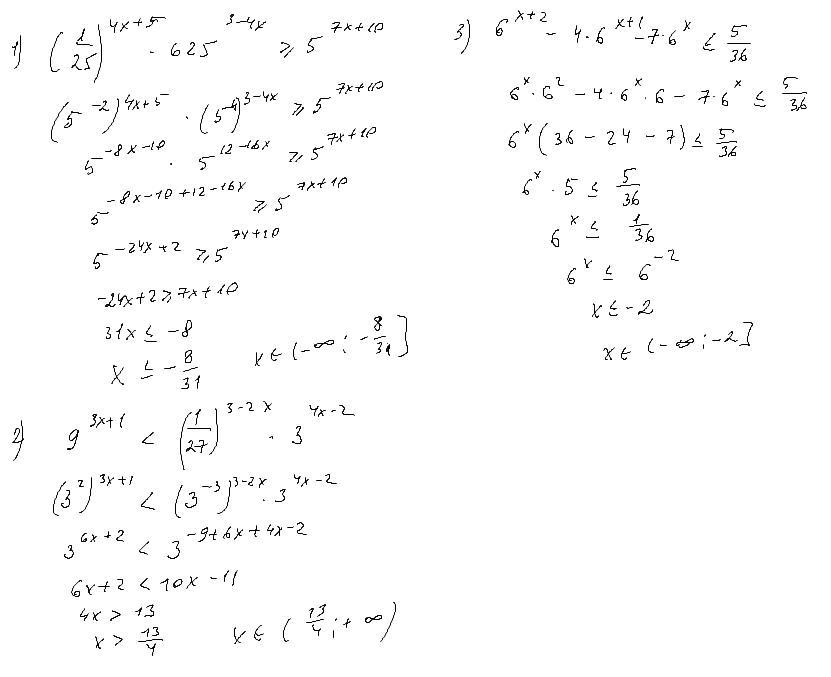 1) (1/25)^(4x+5) · 625^(3-4x) ⩾ 5^(7x+10)
(5^(-2))^(4x+5) · (5^4)^(3-4x) ⩾ 5^(7x+10)
5^(-8x-10) · 5^(12-16x) ⩾ 5^(7x+10)
5^(-8x-10+12-16x) ⩾ 5^(7x+10)
5^(-24x+2) ⩾ 5^(7x+10)
-24x+2 ⩾ 7x+10
31x ≤ -8
x ≤ -8/31 x ∈ (-∞; -8/31]
2) 9^(3x+1) < (1/27)^(3-2x) · 3^(4x-2)
(3^2)^(3x+1) < (3^(-3))^(3-2x) · 3^(4x-2)
3^(6x+2) < 3^(-9+6x+4x-2)
6x+2 < 10x-11
4x > 13
x > 13/4 x ∈ (13/4; +∞)
3) 6^(x+2) - 4·6^(x+1) - 7·6^x ≤ 5/36
6^x·6^2 - 4·6^x·6 - 7·6^x ≤ 5/36
6^x(36-24-7) ≤ 5/36
6^x · 5 ≤ 5/36
6^x ≤ 1/36
6^x ≤ 6^(-2)
x ≤ -2
x ∈ (-∞; -2]